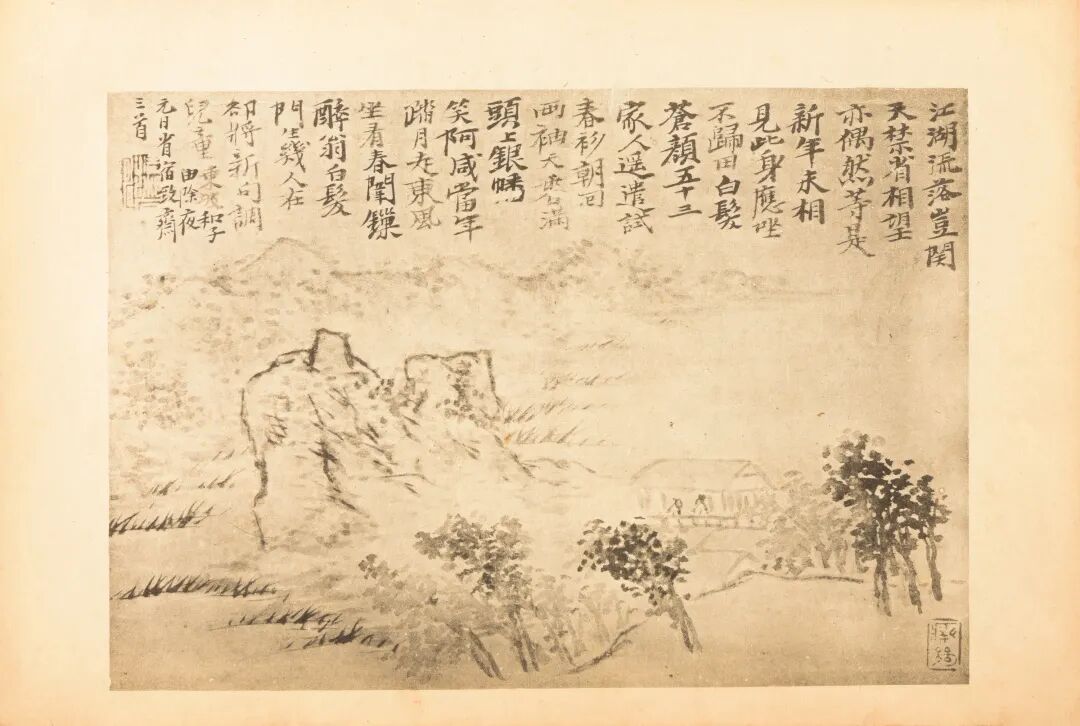 江湖流落豈関
天禁省相望
亦偶然等是
新年未相
見此身應坐
不歸田白髮
蒼顔五十三
家人遥遣試
春衫朝回
兩袖天香滿
頭上銀幡
笑阿咸當年
踏月走東風
坐看春闈鏁
醉翁白髮
門生幾人在
却將新句調
兒童
東坡和子
由除夜
元日省宿致齋
三首